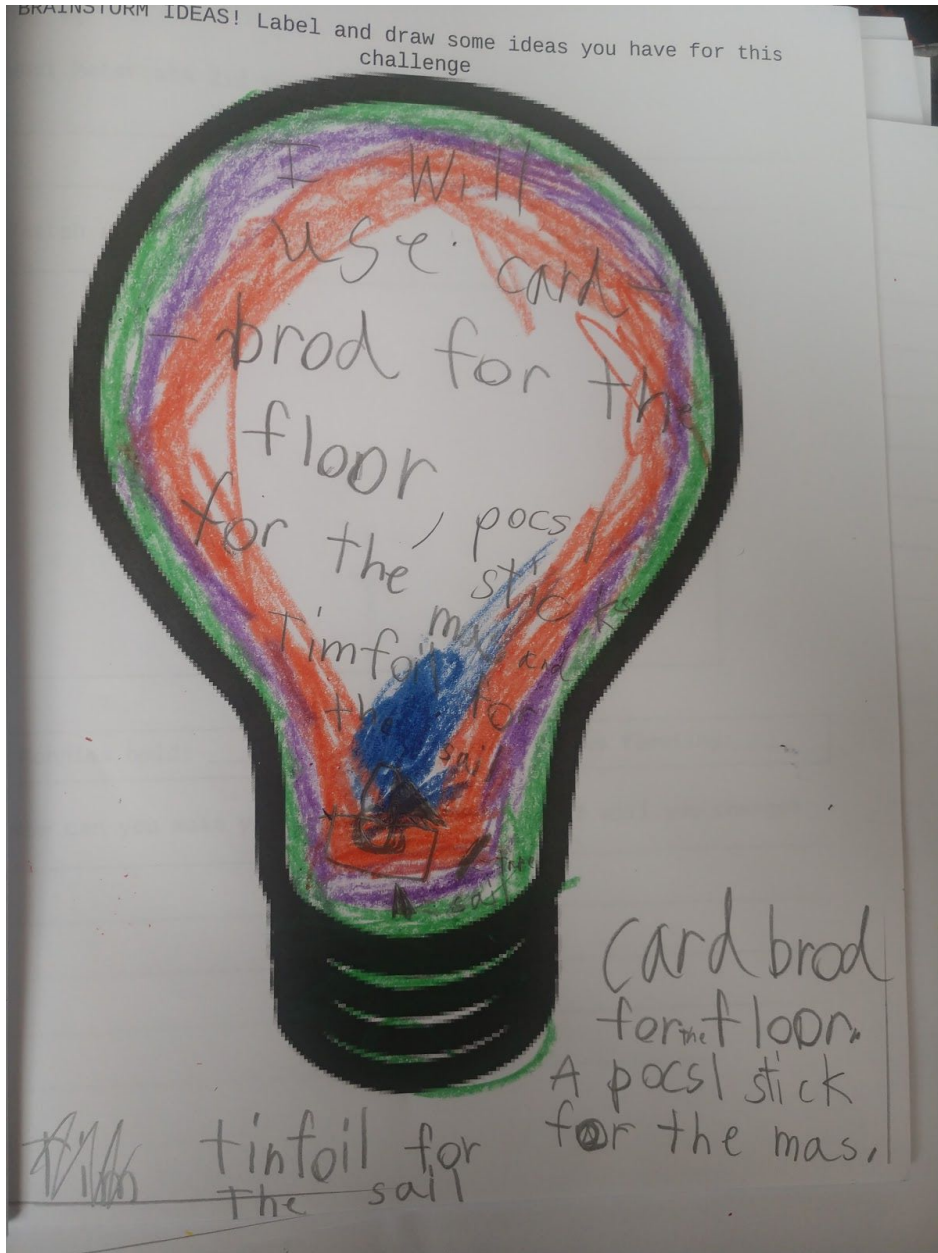 BRAINSTORM IDEAS! Label and draw some ideas you have for this
challenge
I Will
use card-
-brod for the
floor, pocsl
for the sticks
mas
Timfoil and
the for
sail
sail
card brod
for the floor.
A pocsl stick
for the mas.
tinfoil for
The sail